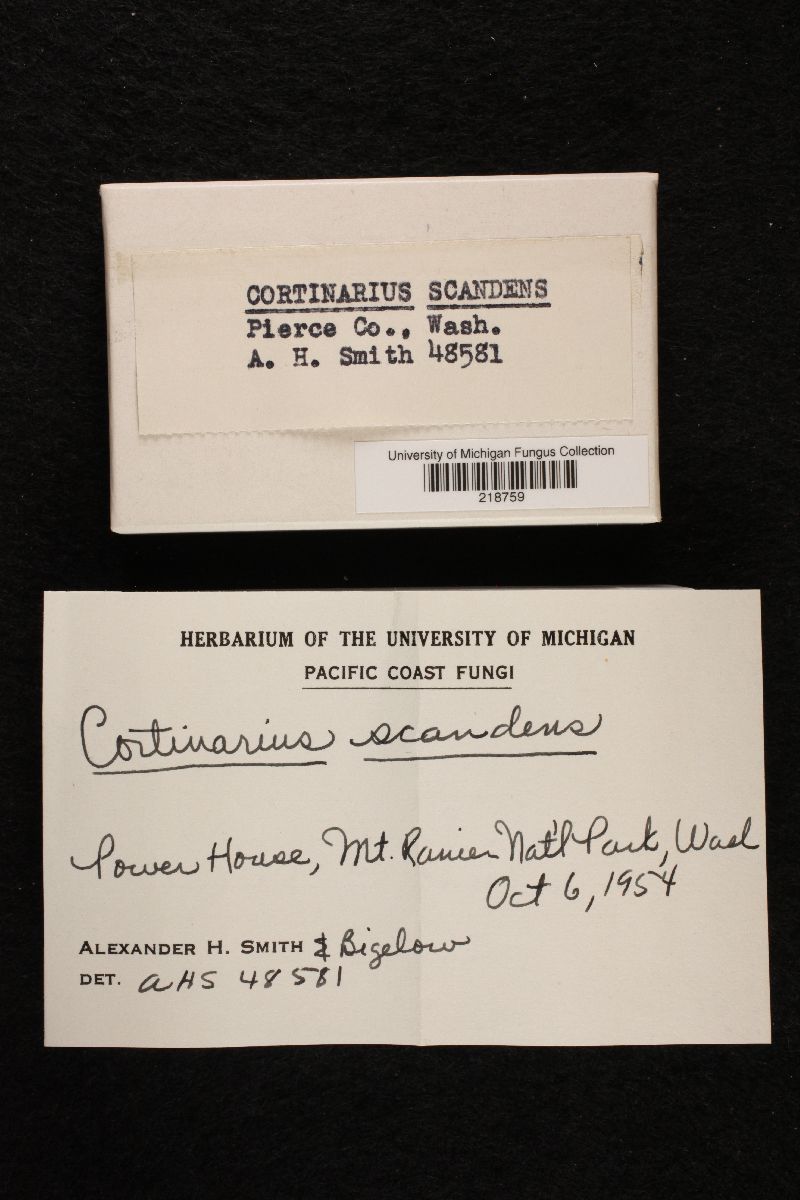 CORTINARIUS SCANDENS
Pierce Co., Wash.
A. H. Smith 48581
University of Michigan Fungus Collection
218759
HERBARIUM OF THE UNIVERSITY OF MICHIGAN
PACIFIC COAST FUNGI
Cortinarius scandens
Power House, Mt. Ranier Nat'l Park, Wash
Oct 6, 1954
ALEXANDER H. SMITH & Bigelow
DET. AHS 48581